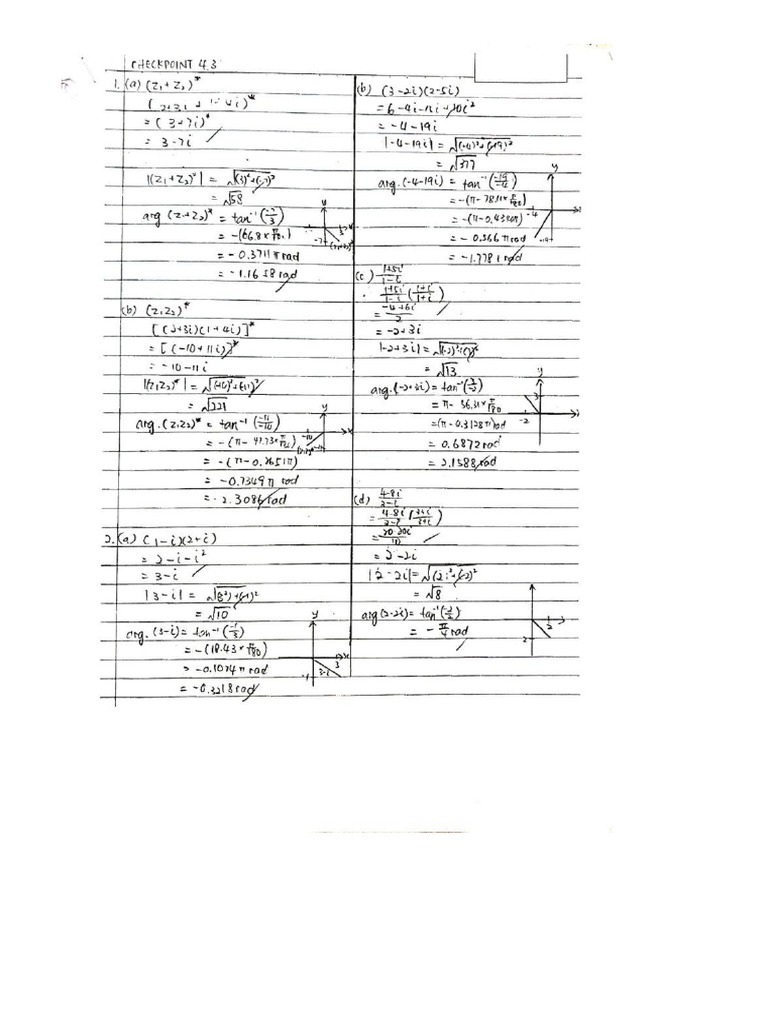 CHECKPOINT 4.3
1. (a) (z₁+z₂)*
(2+3i + 1+4i)*
= (3+7i)*
= 3-7i
|(z₁+z₂)*| = √(3)²+(-7)²
= √58
arg (z₁+z₂)* = tan⁻¹(-7/3)
= -(66.8 × π/180)
= -0.3711π rad
= -1.1658 rad
y
3
x
-7
(b) (z₁z₂)*
[(2+3i)(1+4i)]*
= [(-10+11i)]*
= -10-11i
|(z₁z₂)*| = √(-10)²+(-11)²
= √221
arg. (z₁z₂)* = tan⁻¹(-11/-10)
= -(π - 47.73 × π/180)
= -(π - 0.2651π)
= -0.7349π rad
= -2.3086 rad
y
-10
x
2. (a) (1-i)(2+i)
= 2-i-i²
= 3-i
|3-i| = √(3²)+(-1)²
= √10
arg. (3-i) = tan⁻¹(-1/3)
= -(18.43 × π/180)
= -0.1024π rad
= -0.3218 rad
y
x
3
-1
3-i
(b) (3-2i)(2-5i)
= -4-19i
|-4-19i| = √(-4)²+(-19)²
= √377
arg. (-4-19i) = tan⁻¹(-19/-4)
= -0.566π rad
= -1.7781 rad
y
-4
x
-19
(c) 1+5i/1-i
1+5i/1-i (1+i/1+i)
= -4+6i/2
= -2+3i
|-2+3i| = √(-2)²+(3)²
= √13
arg. (-2+3i) = tan⁻¹(3/-2)
= π - 56.31 × π/180
= (π - 0.3128π) rad
= 0.6872 rad
= 2.1588 rad
y
3
-2
x
(d) 4-8i/3-i
= 4-8i/3-i (3+i/3+i)
= 20-20i/10
= 2-2i
|2-2i| = √(2)²+(-2)²
= √8
arg (2-2i) = tan⁻¹(-2/2)
= -π/4 rad
2